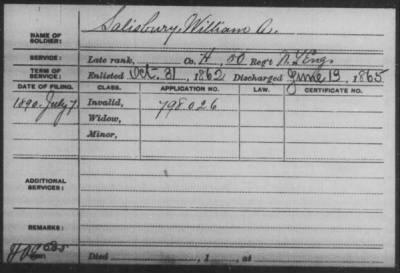 NAME OF SOLDIER: Salisbury, William A.
SERVICE: Late rank, Co. H, 50 Reg't N.Y. Eng.
TERM OF SERVICE: Enlisted Oct. 21, 1862 Discharged June 13, 1865
DATE OF FILING. CLASS. APPLICATION NO. LAW. CERTIFICATE NO.
1890. July 7. Invalid, 798.026
Widow,
Minor,
ADDITIONAL SERVICES:
REMARKS:
Died , 1 , at